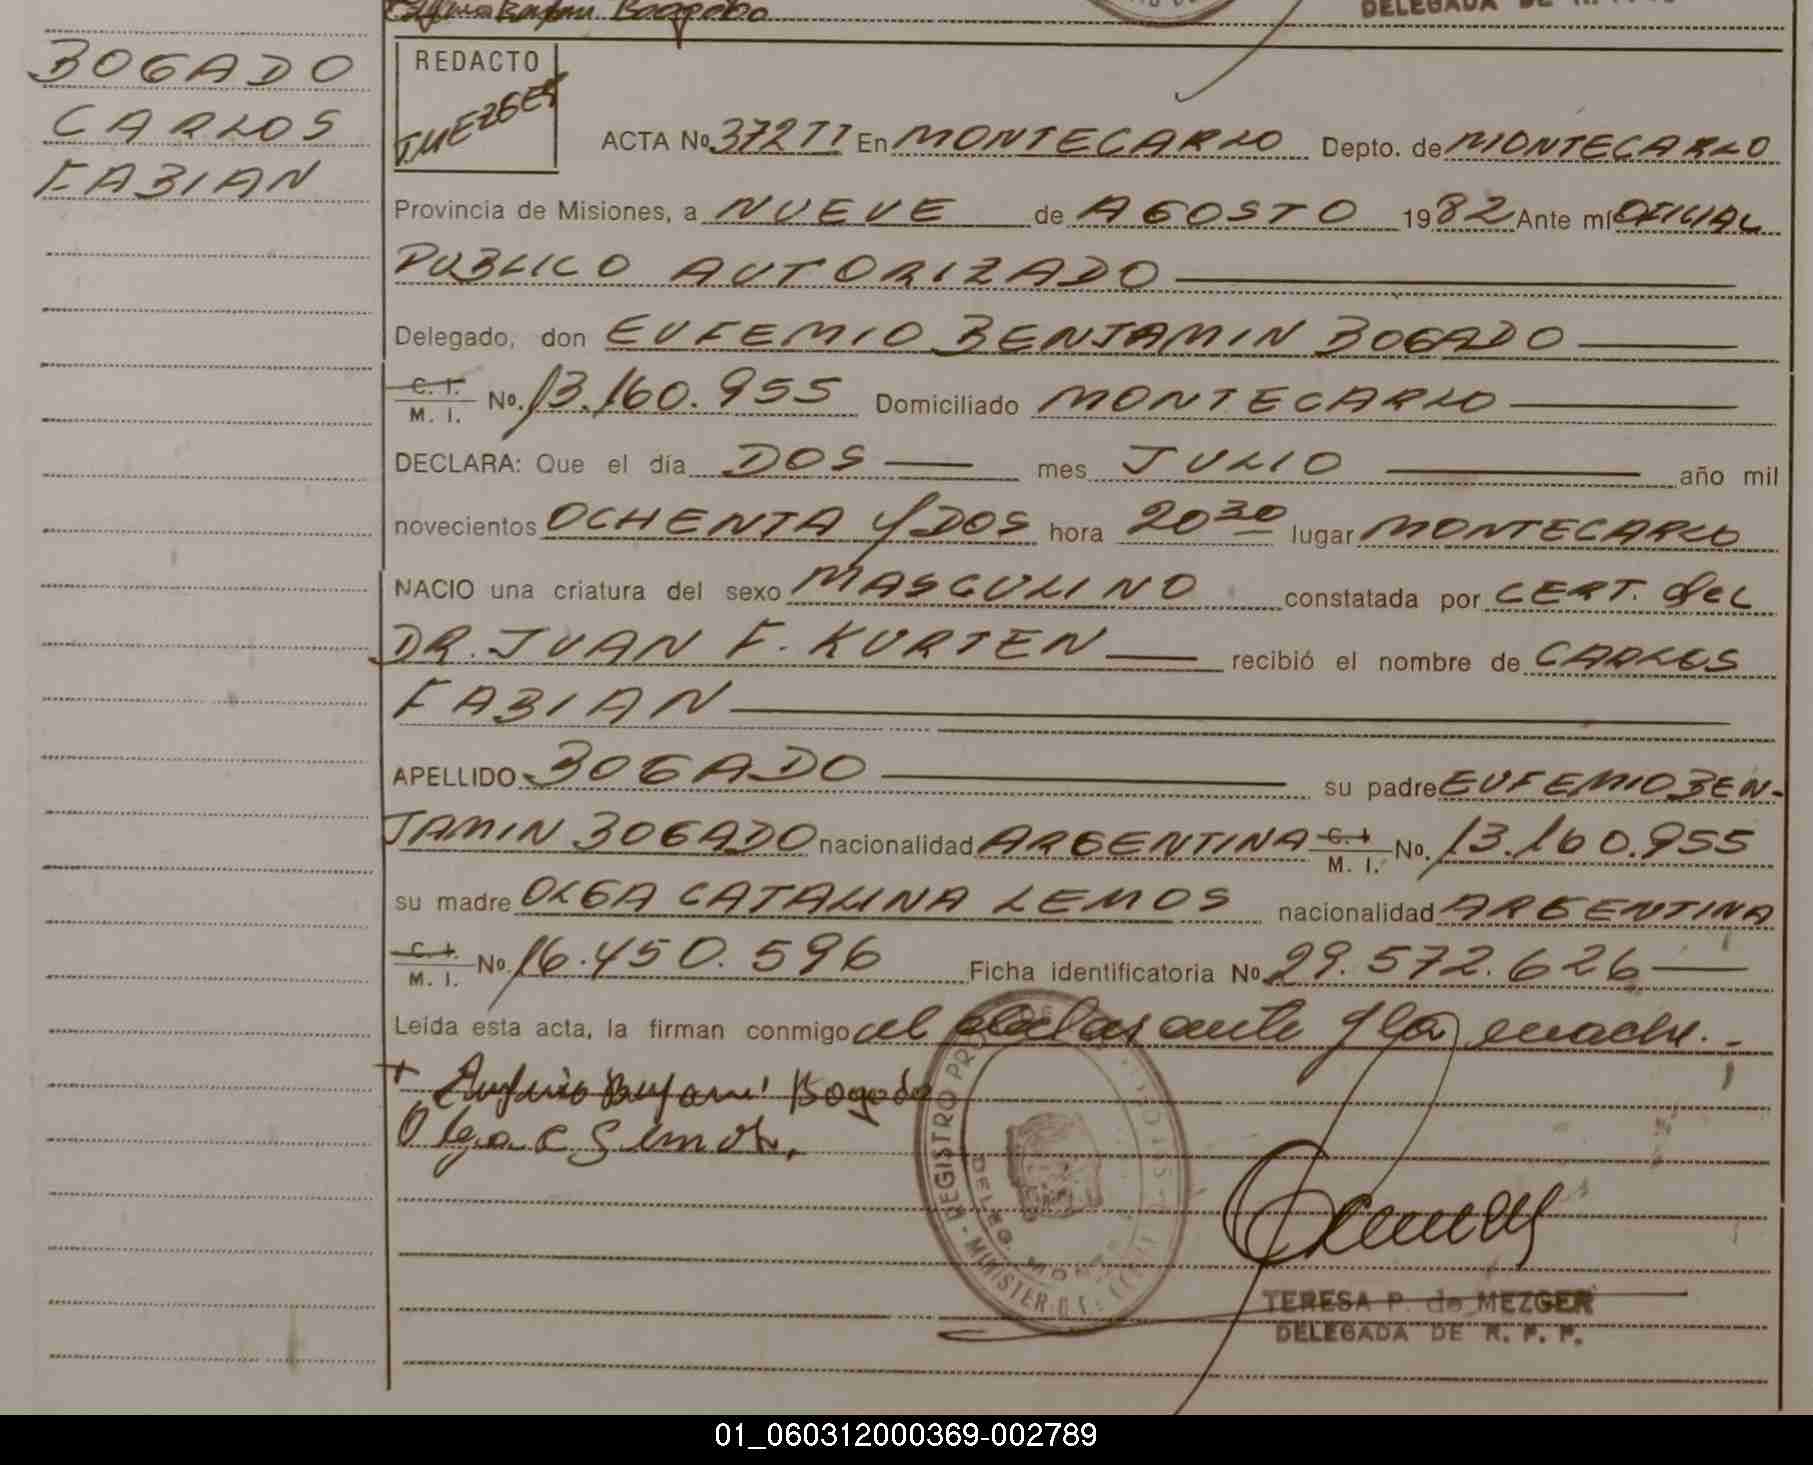 DELEGADA DE R.P.P.
BOGADO
CARLOS
FABIAN
REDACTO
TMEZGER
ACTA No 372TI En MONTECARLO Depto. de MONTECARLO
Provincia de Misiones, a NUEVE de AGOSTO 1982 Ante mí OFICIAL
PUBLICO AUTORIZADO
Delegado, don EUFEMIO BENJAMIN BOGADO
C. I.
M. I. No. 13.160.955 Domiciliado MONTECARLO
DECLARA: Que el día DOS mes JULIO año mil
novecientos OCHENTA Y DOS hora 20 30 lugar MONTECARLO
NACIO una criatura del sexo MASCULINO constatada por CERT. del
DR. JUAN F. KURTEN recibió el nombre de CARLOS
FABIAN
APELLIDO BOGADO su padre EUFEMIO BEN-
JAMIN BOGADO nacionalidad ARGENTINA C. I. M. I. No. 13.160.955
su madre OLGA CATALINA LEMOS nacionalidad ARGENTINA
C. I.
M. I. No. 16.450.596 Ficha identificatoria No 29.572.626
Leída esta acta, la firman conmigo el declarante y la madre.
Bogado
Olga C Lemos.
REGISTRO
DELEG. MONTE
TERESA P. de MEZGER
DELEGADA DE R. P. P.
01_060312000369-002789